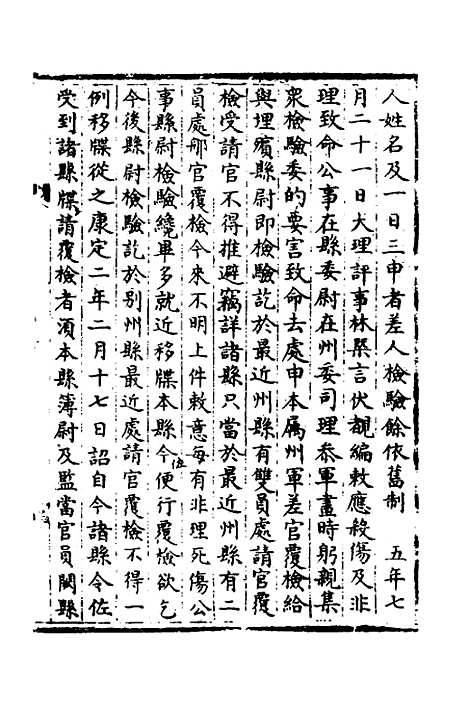 人姓名及一日三申者差人檢驗餘依舊制　五年七
月二十一日大理評事林槩言伏覩編敕應殺傷及非
理致命公事在縣委尉在州委司理叅軍畫時躬親集
衆檢驗委的要害致命去處申本属州軍差官覆檢給
與埋殯縣尉即檢驗訖於最近州縣有雙員處請官覆
檢受請官不得推避竊詳諸縣只當於最近州縣有二
員處那官覆檢今來不明上件敕意每有非理死傷公
事縣尉檢驗纔畢多就近移牒本縣令佐便行覆檢欲乞
今後縣尉檢驗訖於別州縣最近處請官覆檢不得一
例移牒從之康定二年二月十七日詔自今諸縣令佐
受到諸縣牒請覆檢者湏本縣簿尉及監當官員闕縣